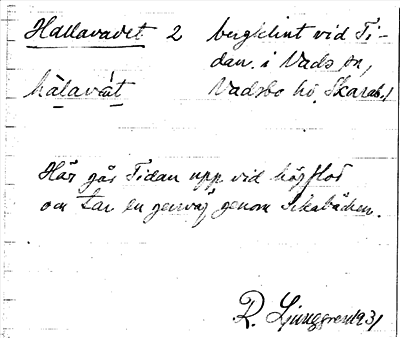 Hallavadet 2 bergklint vid Ti-
dan i Vads sn,
hàlavát Vadsbo hd, Skarab. l
Här går Tidan upp vid högflod
och tar en genväg genom Ekabäcken.
R. Ljunggren 1931